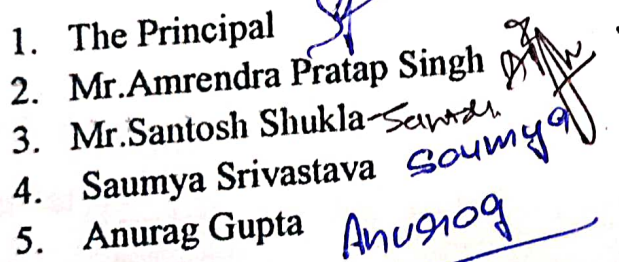 1. The Principal
2. Mr.Amrendra Pratap Singh
3. Mr.Santosh Shukla-
4. Saumya Srivastava Soumya
5. Anurag Gupta Anurag